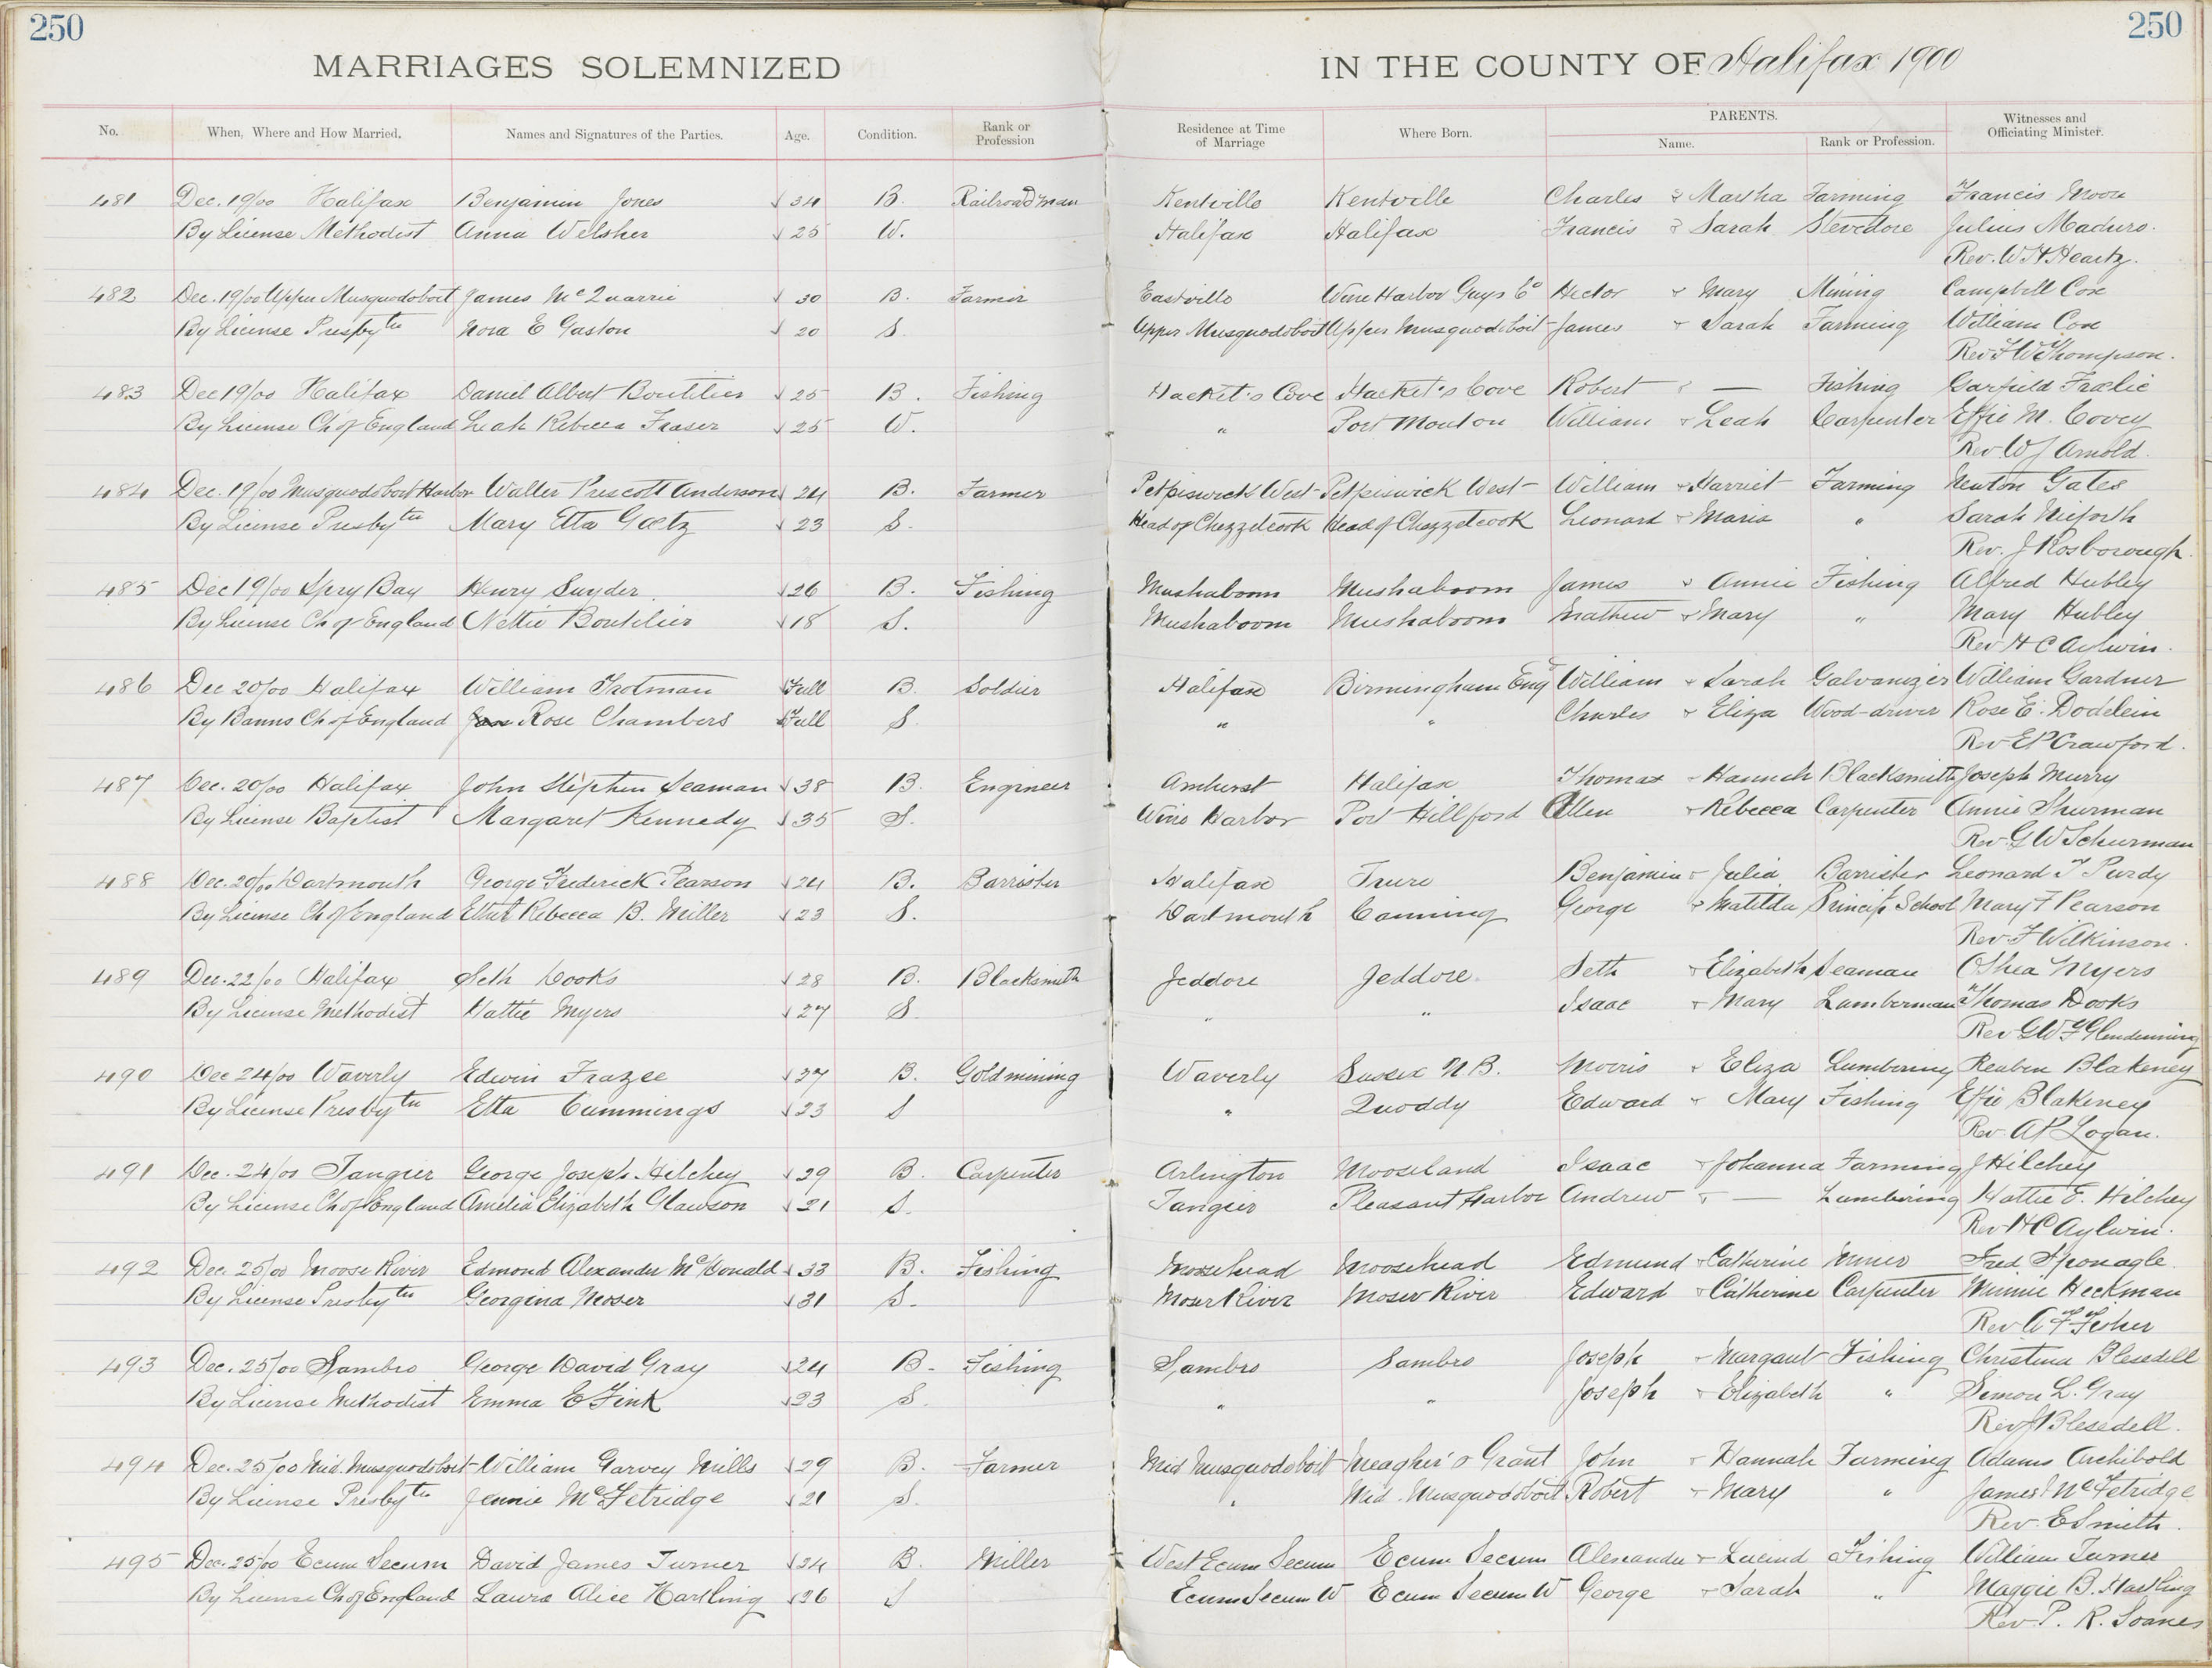 250 250
MARRIAGES SOLEMNIZED IN THE COUNTY OF Halifax 1900
No. When, Where and How Married. Names and Signatures of the Parties. Age. Condition. Rank or Profession Residence at Time of Marriage Where Born. PARENTS. Name. Rank or Profession. Witnesses and Officiating Minister.
481 Dec. 19/00 Halifax Benjamin Jones 34 B. Railroadman Kentville Kentville Charles & Martha Farming Francis Moore
By License Methodist Anna Welsher 25 W. Halifax Halifax Francis & Sarah Stevedore Julius Maduro.
Rev. W H Heartz.
482 Dec. 19/00 Upper Musquodoboit James McQuarrie 30 B. Farmer Eastville Wine Harbor Guys Co Hector & Mary Mining Campbell Cox
By License Presbytn Nora E Gaston 20 S. Upper Musquodoboit Upper Musquodoboit James & Sarah Farming William Cox
Rev F W Thompson.
483 Dec 19/00 Halifax Daniel Albert Boutilier 25 B. Fishing Hacket's Cove Hacket's Cove Robert & — Fishing Garfield Fralic
By License Ch of England Leah Rebecca Fraser 25 W. " Port Mouton William & Leah Carpenter Effie M. Covey
Rev W J Arnold.
484 Dec. 19/00 Musquodoboit Harbor Walter Prescott Anderson 24 B. Farmer Petpiswick West Petpiswick West William & Harriet Farming Newton Gates
By License Presbytn Mary Etta Gaetz 23 S. Head of Chezzetcook Head of Chezzetcook Leonard & Maria " Sarah Niforth
Rev. J Rosborough.
485 Dec 19/00 Spry Bay Henry Snyder 26 B. Fishing Mushaboom Mushaboom James & Annie Fishing Alfred Hubley
By License Ch of England Nettie Boutilier 18 S. Mushaboom Mushaboom Mathew & Mary " Mary Hubley
Rev H C Aylwin.
486 Dec 20/00 Halifax William Trotman Full B. Soldier Halifax Birmingham Eng William & Sarah Galvanizer William Gardner
By Banns Ch of England Rose Chambers Full S. " " Charles & Eliza Wood-driver Rose E. Dodelein
Rev E P Crawford.
487 Dec. 20/00 Halifax John Stephen Seaman 38 B. Engineer Amherst Halifax Thomas & Hannah Blacksmith Joseph Murry
By License Baptist Margaret Kennedy 35 S. Wine Harbor Port Hillford Allen & Rebecca Carpenter Annie Shurman
Rev. G W Schurman
488 Dec. 20/00 Dartmouth George Frederick Pearson 24 B. Barrister Halifax Truro Benjamin & Julia Barrister Leonard T Purdy
By License Ch of England Ethel Rebecca B. Miller 23 S. Dartmouth Canning George & Matilda Princip School Mary F Pearson
Rev. F Wilkinson.
489 Dec. 22/00 Halifax Seth Dooks 28 B. Blacksmith Jeddore Jeddore. Seth & Elizabeth Seaman OShea Myers
By License Methodist Hattie Myers 27 S. " " Isaac & Mary Lumberman Thomas Dooks
Rev G W F Glendenning
490 Dec 24/00 Waverly Edwin Frazee 27 B. Goldmining Waverly Sussex N B. Morris & Eliza Lumbering Reuben Blakeney
By License Presbytn Etta Cummings 23 S " Quoddy Edward & Mary Fishing Effie Blakeney
Rev. A P Logan.
491 Dec. 24/00 Tangier George Joseph Hilchey 29 B. Carpenter Arlington Mooseland Isaac & Johanna Farming J Hilchey
By License Ch of England Amelia Elizabeth Glawson 21 S. Tangier Pleasant Harbor Andrew & — Lumbering Hattie E. Hilchey
Rev H C Aylwin.
492 Dec. 25/00 Moose River Edmond Alexander McDonald 33 B. Fishing Moosehead Moosehead Edmund & Catherine Miner Fred Spronagle
By License Presbytn Georgina Moser 31 S. Moser River Moser River Edward & Catherine Carpenter Winnie Heckman
Rev A F Fisher
493 Dec. 25/00 Sambro George David Gray 24 B. Fishing Sambro Sambro Joseph & Margaret Fishing Christina Blesedell
By License Methodist Emma E Fink 23 S. " " Joseph & Elizabeth " Simon L. Gray
Rev J Blesedell.
494 Dec. 25/00 Mid. Musquodoboit William Garvey Mills 29 B. Farmer Mid Musquodoboit Meagher's Grant John & Hannah Farming Adams Archibold
By License Presbytn Jennie McFetridge 21 S. " Mid. Musquodoboit Robert & Mary " James McFetridge
Rev. E Smith.
495 Dec. 25/00 Ecum Secum David James Turner 24 B. Miller West Ecum Secum Ecum Secum Alexander & Lucind Fishing William Turner
By License Ch of England Laura Alice Hartling 26 S Ecum Secum W Ecum Secum W George & Sarah " Maggie B. Hartling
Rev. P. R. Soanes